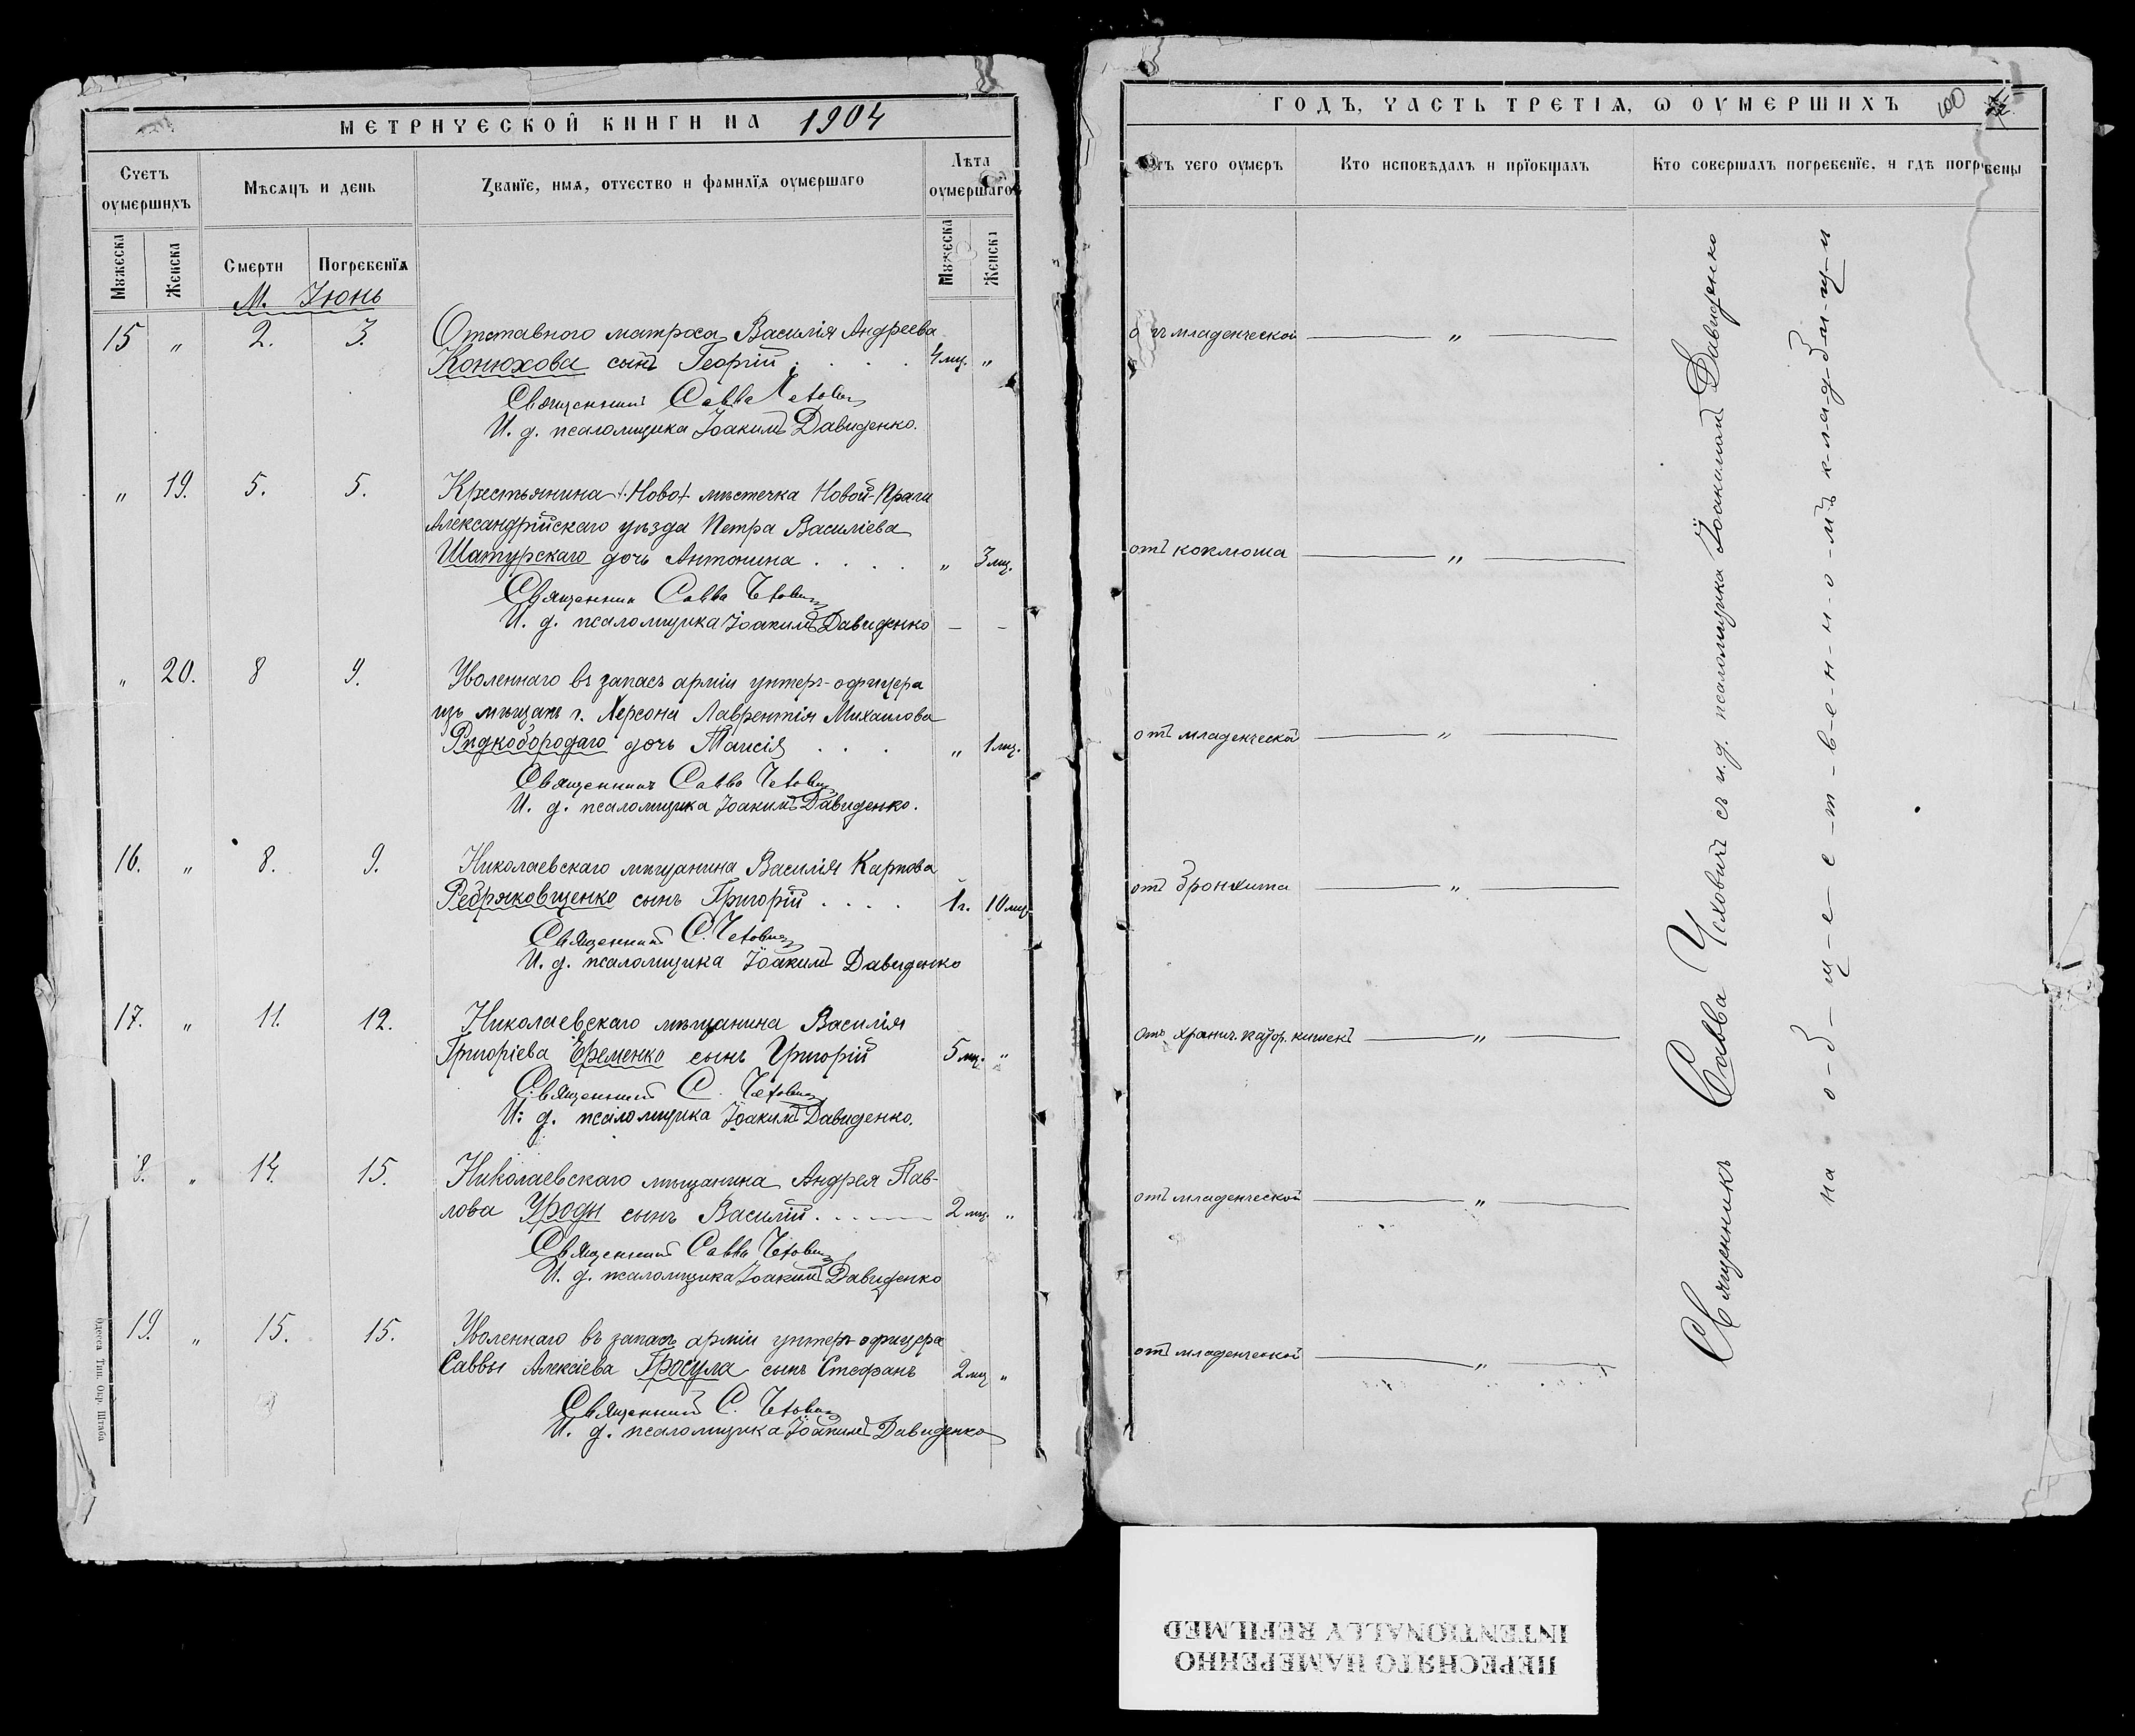 МЕТРИЧЕСКОЙ КНИГИ НА 1904
Счетъ оумершихъ
Мѣсяцъ и день
Званїе, имя, отчество и фамилїя оумершаго
Лѣта оумершаго
Мужеска
Женска
Смерти
Погребенїя
Мужеска
Женска
М. Іюнь
15 " 2. 3. Отставного матроса Василія Андреева
Конюхова сынъ Георгій . . . 4 мц. "
Священникъ Савва Чехович
И. д. псаломщика Іоакимъ Давиденко.
" 19. 5. 5. Крестьянина +Ново+ мѣстечка Новой-Праги
Александрійскаго уѣзда Петра Василіева
Шатурскаго дочь Антонина . . . . " 3 мц.
Священник Савва Чехович
И. д. псаломщика Іоакимъ Давиденко — —
" 20. 8 9. Уволеннаго въ запасъ арміи унтеръ-офицера
изъ мѣщанъ г. Херсона Лаврентія Михаилова
Ридкобородаго дочь Таисія . . . " 1 мц.
Священникъ Савва Чехович
И. д. псаломщика Іоакимъ Давиденко.
16. " 8. 9. Николаевскаго мѣщанина Василія Карпова
Ребряковщенко сынъ Григорій . . . . 1 г. 10 мц.
Священникъ С. Чехович
И. д. псаломщика Іоакимъ Давиденко
17. " 11. 12. Николаевскаго мѣщанина Василія
Григоріева Еременко сынъ Григорій 5 мц. "
Священникъ С. Чехович
И. д. псаломщика Іоакимъ Давиденко.
8. " 14. 15. Николаевскаго мѣщанина Андрея Пав-
лова Уроды сынъ Василій . . . 2 мц. "
Священникъ Савва Чехович
И. д. псаломщика Іоакимъ Давиденко
19. " 15. 15. Уволеннаго въ запасъ арміи унтеръ-офицера
Саввы Алексіева Гросула сынъ Стефанъ 2 мц "
Священникъ С. Чехович
И. д. псаломщика Іоакимъ Давиденко
Одесса Тип. Окр. Штаба
ГОДЪ, ЧАСТЬ ТРЕТІЯ, Ѡ ОУМЕРШИХЪ 100
Отъ чего оумеръ
Кто исповѣдалъ и прїобщалъ
Кто совершалъ погребенїе, и гдѣ погребены
отъ младенческой — " —
отъ коклюша — " —
отъ младенческой — " —
отъ бронхита — " —
отъ хронич. катор. кишекъ — " —
отъ младенческой — " —
отъ младенческой — " —
Священникъ Савва Чеховичъ съ и.д. псаломщика Іоакимомъ Давиденко
на о-б-щ-е-с-т-в-е-н-н-о-мъ к-ла-д-би-щ-и
ПЕРЕСНЯТО НАМЕРЕННО
INTENTIONALLY REFILMED